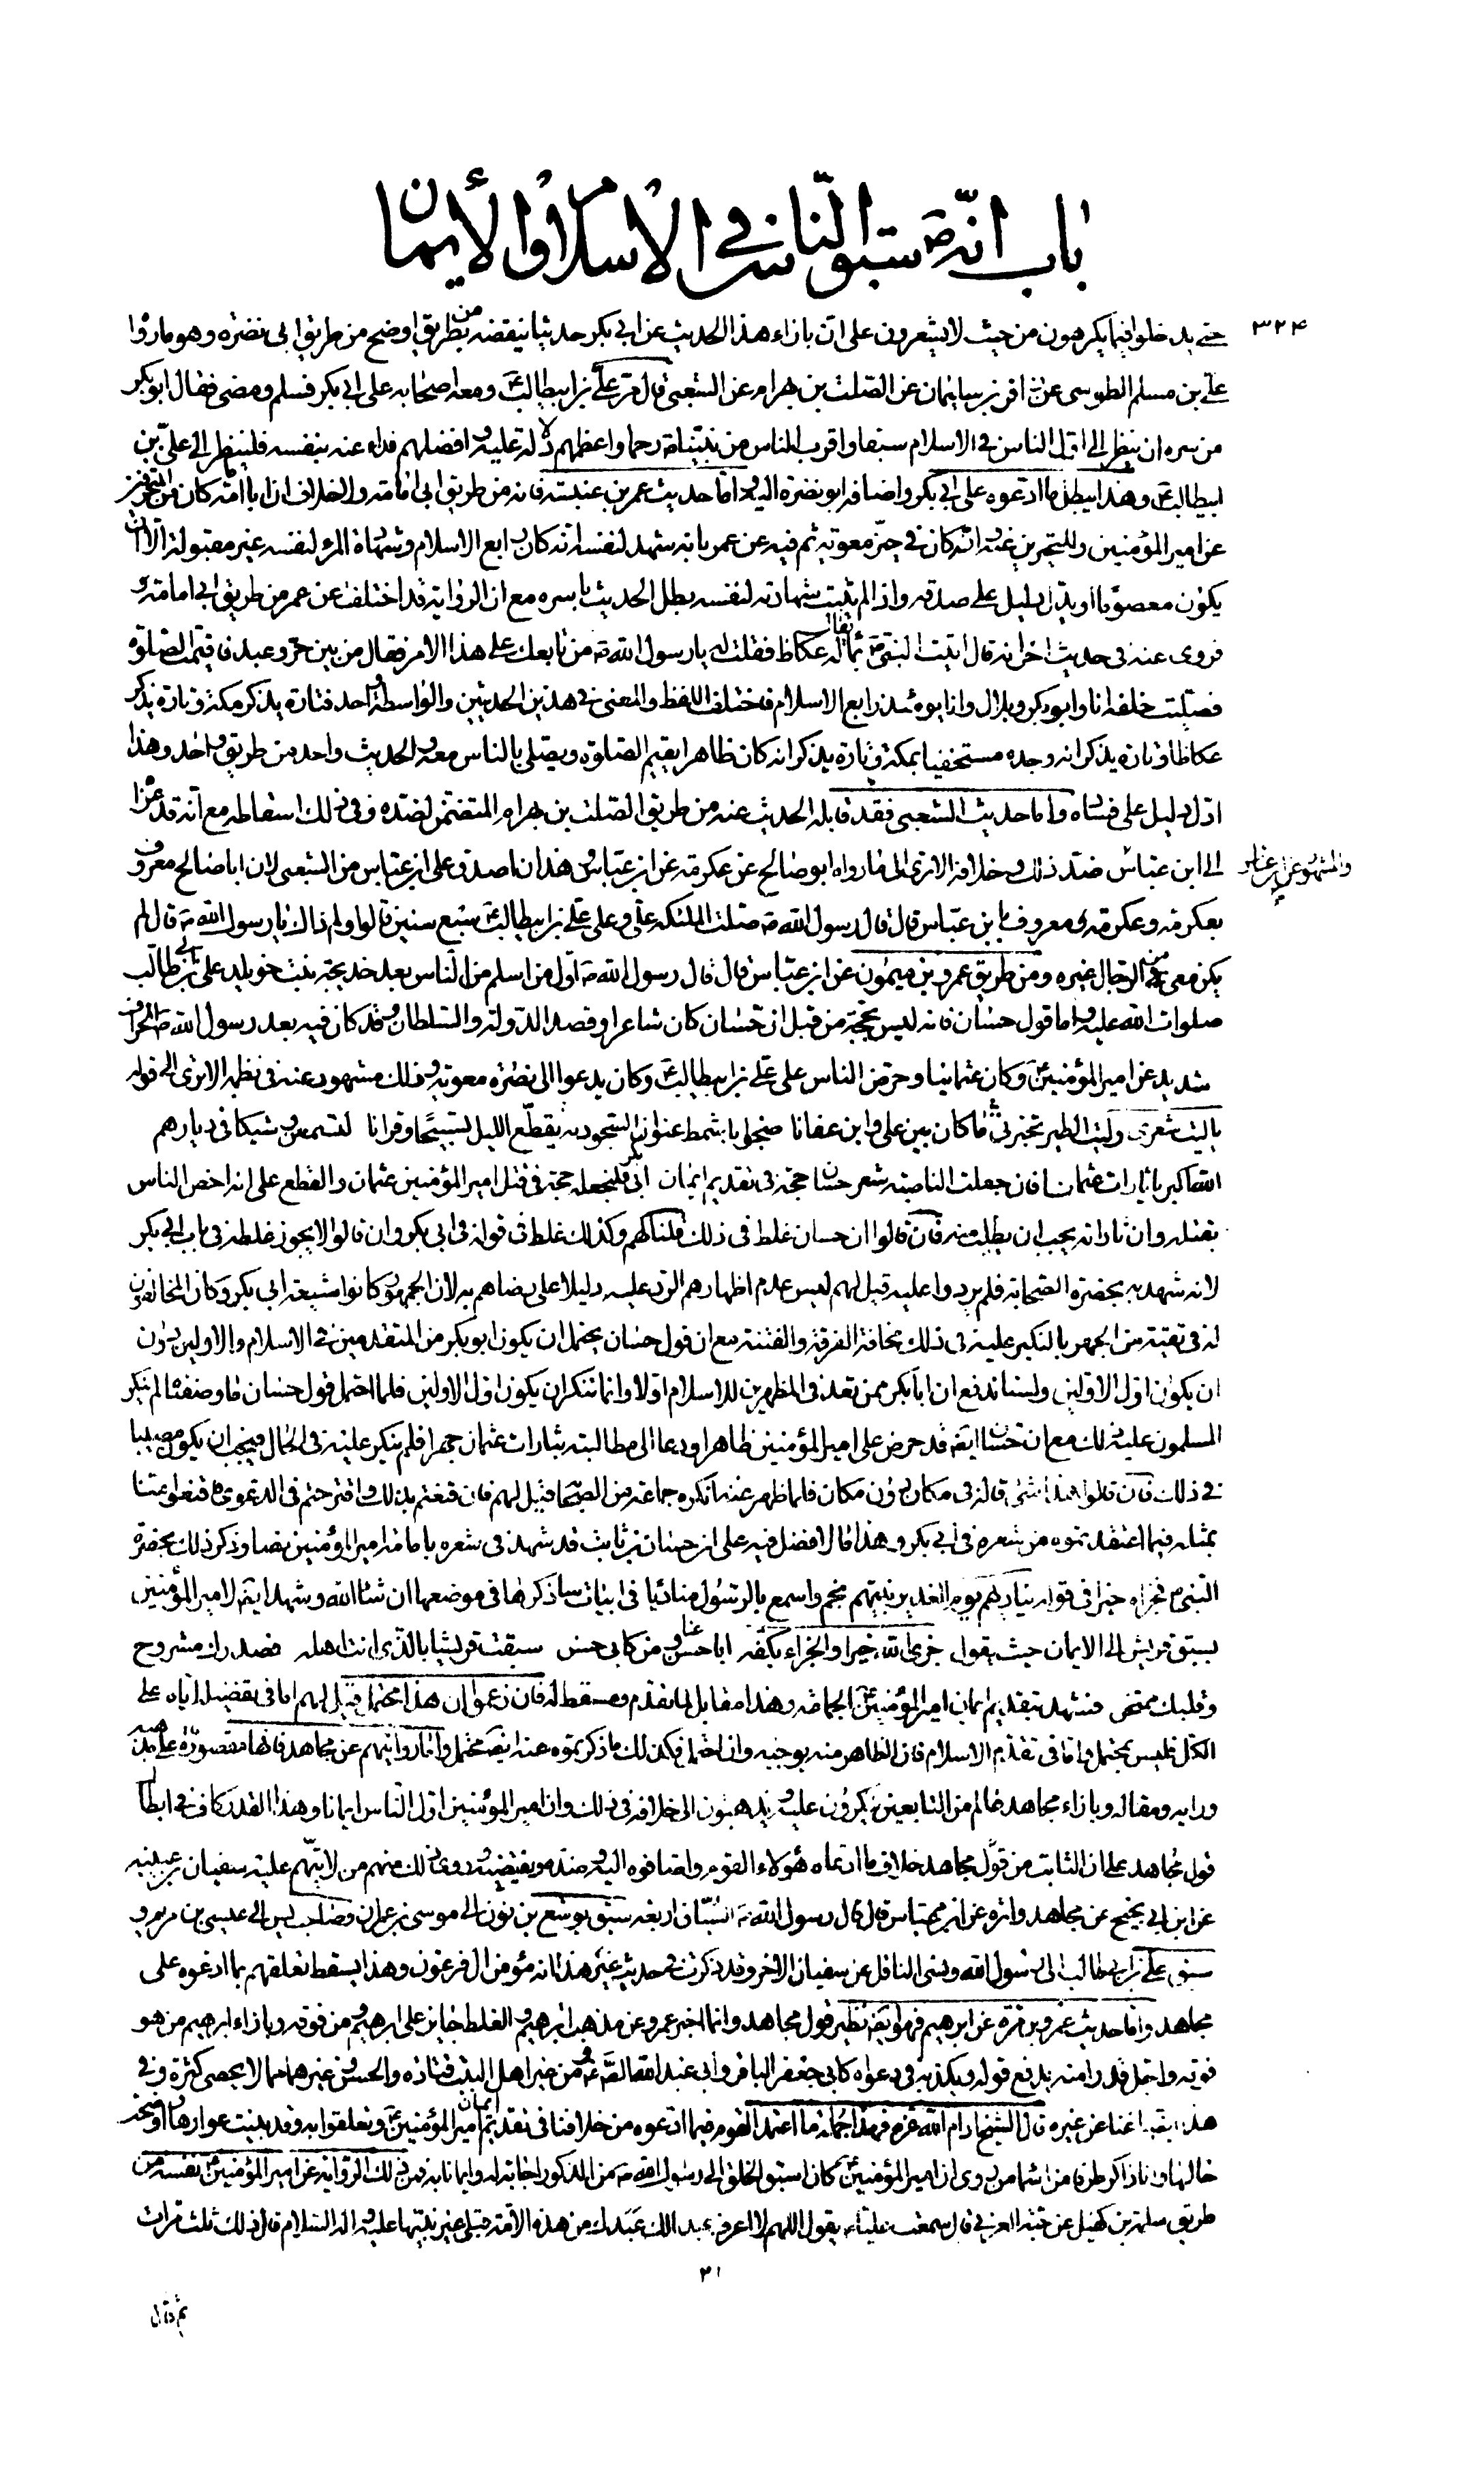 باب انّه ص سبق النّاس في الاسلام و الأيمان
٣٢٤
حتى يدخلوا فيما يكرهون من حيث لا يشعرون على ان بازاء هذا الحديث عن ابى بكر حديثا ينقضه من طريق اوضح من طريق ابى نضرة وهو ما رواه
علي بن مسلم الطوسى عن زافر بن سليمان عن الصلت بن بهرام عن الشعبى قال مر علي بن ابيطالب ع ومعه اصحابه على ابى بكر فسلم ومضى فقال ابو بكر
من سره ان ينظر الى اول الناس في الاسلام سبقا واقرب الناس من نبيّنا ص رحما واعظمهم دلالة عليه و افضلهم فداء عنه بنفسه فلينظر الى علىّ بن
ابيطالب ع وهذا يبطل ما ادعوه على ابى بكر واضافه ابو نضرة اليه واما حديث عمر بن عنبسة فانه من طريق ابى امامة ولا خلاف ان ابا امامة كان من المنحرفين
عن امير المؤمنين والمتحيزين عنه وانه كان في حيّز معوية ثم فيه عن عمر بانه شهد لنفسه انه كان رابع الاسلام وشهادة المرء لنفسه غير مقبولة الا ان
يكون معصوما او يدل دليل على صدقه واذا لم يثبت شهادته لنفسه بطل الحديث باسره مع ان الرواية قد اختلفت عن عمر من طريق ابى امامة
فروى عنه في حديث اخر انه قال اتيت النبى ص بماء يقال له عكاظ فقلت له يا رسول الله ص من تابعك على هذا الامر فقال من بين حر وعبد فاقيمت الصلوة
فصليت خلفه انا وابو بكر وبلال وانا يومئذ رابع الاسلام فاختلف اللفظ والمعنى في هذين الحديثين والواسطة واحد فتارة يذكر مكة وتارة يذكر
عكاظا وتارة يذكر انه وجده مستخفيا بمكة وتارة يذكر انه كان ظاهرا يقيم الصلوة ويصلى بالناس معه والحديث واحد من طريق واحد وهذا
ادل دليل على فساده واما حديث الشعبى فقد قابله الحديث عنه من طريق الصلت بن بهرام المتضمن لضده وفى ذلك اسقاطه مع انه قد عزاه
الى ابن عباس والمشهور عن ابن عباس ضد ذلك وخلافه الا ترى الى ما رواه ابو صالح عن عكرمة عن ابن عباس وهذان اصدق على ابن عباس من الشعبى لان ابا صالح معروف
بعكرمة وعكرمة معروف بابن عباس قال قال رسول الله ص صلت الملئكة على وعلى علي بن ابيطالب ع سبع سنين قالوا ولم ذاك يا رسول الله ص قال لم
يكن معى من الرجال غيره ومن طريق عمرو بن ميمون عن ابن عباس قال قال رسول الله ص اول من اسلم من الناس بعد خديجة بنت خويلد على بن ابي طالب
صلوات الله عليه واما قول حسان فانه ليس بحجة من قبل ان حسان كان شاعرا وقصد الدولة والسلطان وقد كان فيه بعد رسول الله ص انحراف
شديد عن امير المؤمنين ع وكان عثمانيا وحرض الناس على علي بن ابيطالب ع وكان يدعوا الى نصرة معوية وذلك مشهور عنه في نظمه الا ترى الى قوله
يا ليت شعرى وليت الطير تخبرنى ما كان بين على وابن عفانا ضحوا باشمط عنوان السجود به يقطع الليل تسبيحا وقرانا لتسمعن وشيكا في ديارهم
الله اكبر يا ثارات عثمانا فان جعلت الناصبة شعر حسان حجة في تقديم ايمان ابى بكر فلتجعله حجة في قتل امير المؤمنين عثمان والقطع على انه اخص الناس
بقتله وان ثاراته يجب ان يطلب منه فان قالوا ان حسان غلط في ذلك قلنا لهم وكذلك غلط في قوله في ابى بكر وان قالوا لا يجوز غلطه في باب ابى بكر
لانه شهد به بحضرة الصحابة فلم يردوا عليه قيل لهم ليس عدم اظهارهم الرد عليه دليلا على رضاهم به لان الجمهور كانوا شيعة ابى بكر وكان المخالفون
له في تقية من الجهر بالنكير عليه في ذلك مخافة الفرقة والفتنة مع ان قول حسان يحتمل ان يكون ابو بكر من المتقدمين في الاسلام والاولين دون
ان يكون اول الاولين ولسنا ندفع ان ابا بكر ممن يعد في المظهرين للاسلام اولا وانما ننكر ان يكون اول الاولين فلما احتمل قول حسان ما وصفناه لم ينكر
المسلمون عليه ذلك مع ان حسان ايضا قد حرض على امير المؤمنين ظاهرا ودعا الى مطالبته بثارات عثمان جهرا فلم ينكر عليه في الحال فيجب ان يكون مصيبا
في ذلك فان قالوا هذا شئ قاله في مكان دون مكان فلما ظهر عنه انكره جماعة من الصحابة قيل لهم فان قنعتم بذلك واقترحتم في الدعوى فاقنعوا منا
بمثله فيما اعتقدتموه من شعره في ابى بكر وهذا ما لا فضل فيه على ان حسان بن ثابت قد شهد في شعره بامامة امير المؤمنين نصا وذكر ذلك بحضرة
النبى ص فجزاه خيرا في قوله يناديهم يوم الغدير نبيهم بخم واسمع بالرسول مناديا في ابيات ساذكرها في موضعها ان شاء الله وشهد ايضا لامير المؤمنين
بسبق قريش الى الايمان حيث يقول جزى الله عنا خيرا والجزاء بكفه ابا حسن ومن كابى حسن سبقت قريشا بالذى انت اهله فصدرك مشروح
وقلبك ممتحن فشهد بتقديم ايمان امير المؤمنين ع الجماعة وهذا مقابل لما تقدم ومسقط له فان زعموا ان هذا محتمل قيل لهم اما في تفضيله اياه على
الكل فليس بمحتمل واما في تقديم الاسلام فان الظاهر منه يوجبه وان احتمل فكذلك ما ذكرتموه عنه ايضا محتمل واما روايتهم عن مجاهد فانها مقصورة على مذهبه
ورايه ومقاله وبازاء مجاهد عالم من التابعين ينكرون عليه ويذهبون الى خلافه في ذلك وان امير المؤمنين اول الناس ايمانا وهذا القدر كاف في ابطال
قول مجاهد على ان الثابت من قول مجاهد خلاف ما ادعاه هؤلاء القوم واضافوه اليه وضده ونقيضه روى ذلك منهم من لا يتهم عليه سفيان بن عيينة
عن ابن ابى نجيح عن مجاهد واثره عن ابن عباس قال قال رسول الله ص السباق اربعة سبق يوشع بن نون الى موسى بن عمران وصاحب يس الى عيسى بن مريم و
سبق على بن ابى طالب الى رسول الله ونسى الناقل عن سفيان الاخر وقد ذكرت في حديث غير هذا انه مؤمن ال فرعون وهذا يسقط تعلقهم بما ادعوه على
مجاهد واما حديث عمرو بن مرة عن ابرهيم فهو ايضا نظير قول مجاهد وانما اخبر عمرو عن مذهب ابرهيم والغلط جايز على ابرهيم ومن فوقه وبازاء ابرهيم من هو
فوقه واجل قدرا منه يدفع قوله ويكذبه في دعواه كابى جعفر الباقر وابى عبد الله الصادق ع ومن غير اهل البيت قتادة والحسن وغيرهما مما لا يحصى كثرة وفى
هذا غنا عن غيره قال الشيخ ادام الله عزه فهذا جملة ما اعتمد القوم فيما ادعوه من خلافنا في تقديم ايمان امير المؤمنين ع وتعلقوا به وقد بينت عوارها و اوضحت
حالها وانا ذاكر طرفا من اسماء من روى ان امير المؤمنين ع كان اسبق الخلق الى رسول الله ص من الذكور اجابة له وايمانا به فمن ذلك الرواية عن امير المؤمنين ع نفسه من
طريق سلمة بن كهيل عن حبة العرني قال سمعت عليا ع يقول اللهم لا اعرف عبدا لك عبدك من هذه الامة قبلى غير نبيها عليه واله السلام قال ذلك ثلث مرات
٣١
ثم قال